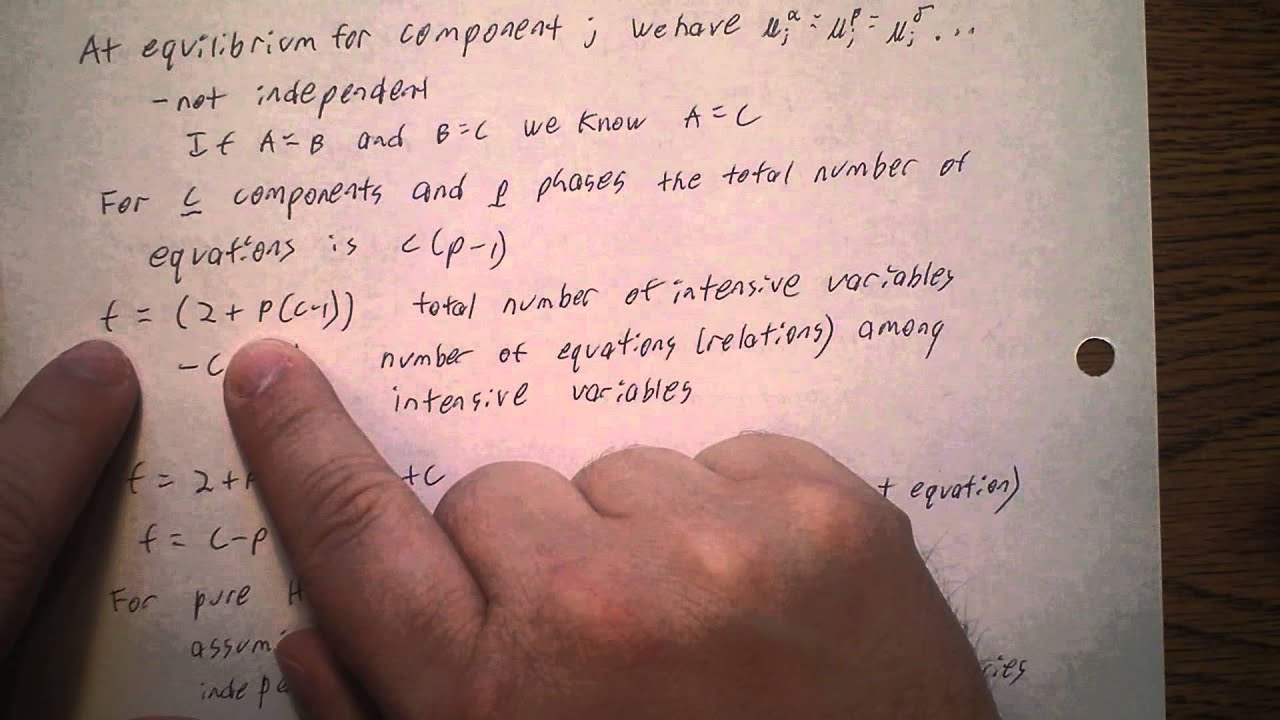 At equilibrium for component j we have μⱼᵅ = μⱼᵝ = μⱼᵟ ...
- not independent
If A=B and B=C we know A=C
For c components and p phases the total number of
equations is c(p-1)
f = (2+p(c-1)) total number of intensive variables
-c number of equations (relations) among
intensive variables
f = 2+ +c equation)
f = c-p
For pure H